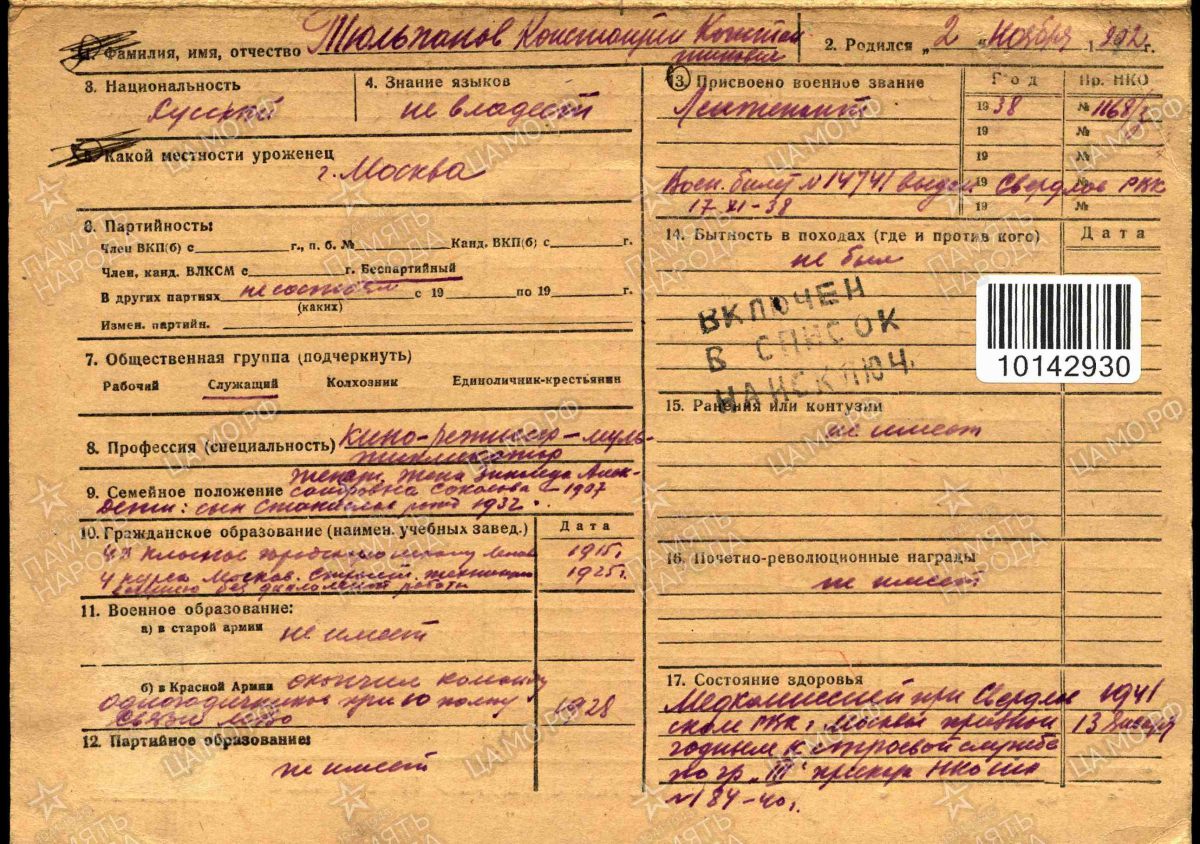 1. Фамилия, имя, отчество Тюльпанов Константин Констан
тинович
2. Родился „2 „ Ноября 1902 г.
3. Национальность
Русский
4. Знание языков
не владеет
5. Какой местности уроженец
г. Москва
6. Партийность:
Член ВКП(б) с г., п. б. № Канд. ВКП(б) с г.
Член, канд. ВЛКСМ с г. Беспартийный
В других партиях не состоял с 19 по 19 г.
(каких)
Измен. партийн.
7. Общественная группа (подчеркнуть)
Рабочий Служащий Колхозник Единоличник-крестьянин
8. Профессия (специальность) кино-режиссер-муль-
типликатор
женат, жена Зинаида Алек-
9. Семейное положение сандровна Соколова - 1907
Дети: сын Станислав рожд 1932.
10. Гражданское образование (наимен. учебных завед.) Дата
4х классное городскую школу 1915г.
4 курса Москов. Строит. 1925г.
без дипломной работы
11. Военное образование:
а) в старой армии не имеет
б) в Красной Армии окончил команду
одногодичников при 10 полку
связи 1928
12. Партийное образование:
не имеет
13. Присвоено военное звание Год Пр. НКО
Лейтенант 1938 № 1168/
19 №
19 №
Воен. билет № 14741 выдан 19 Свердлов РВК №
17-XI-38 19 №
14. Бытность в походах (где и против кого) Дата
не был
ВКЛЮЧЕН
В СПИСОК
НА ИСКЛЮЧ.
10142930
15. Ранения или контузии
не имеет
16. Почетно-революционные награды
не имеет
17. Состояние здоровья
Медкомиссией при Свердлов 1941
ском РВК г. Москвы признан 13 Января
годным к строевой службе
по гр. „III" приказа НКО
№ 184-40г.
ПАМЯТЬ
НАРОДА
ЦАМО.РФ